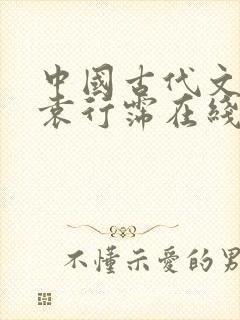 中國古代文
袁行霈在綫
不懂示愛的男